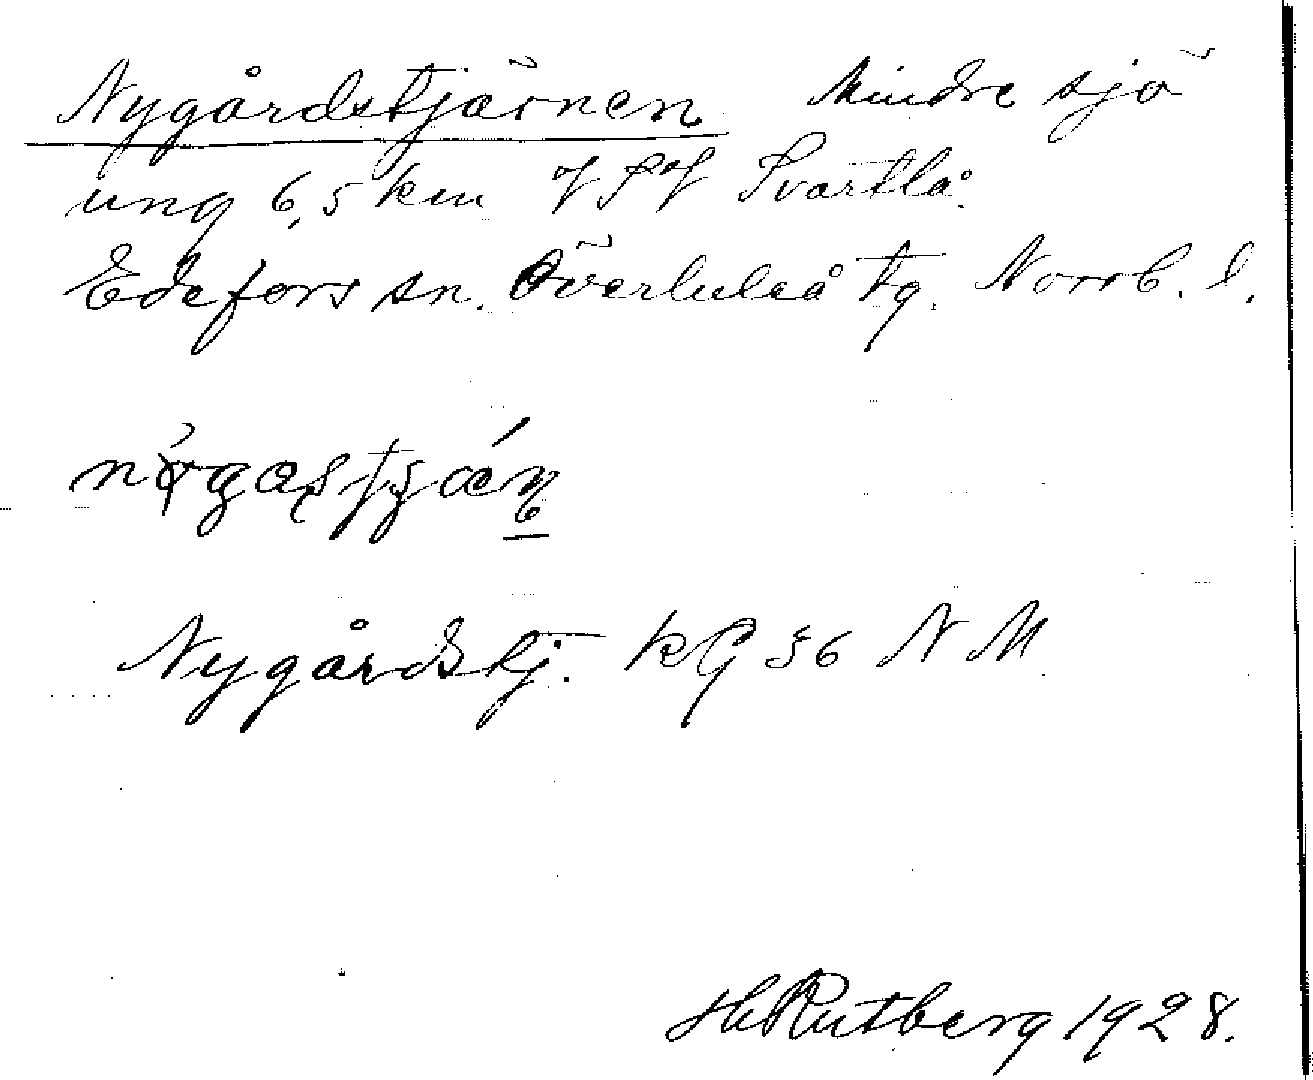 Nygårdstjärnen Mindre sjö
ung 6,5 km VSV Svartlå.
Edefors sn. Överluleå tg. Norrb. l.
Nygårdstj. KG 36 NM
H Rutberg 1928.